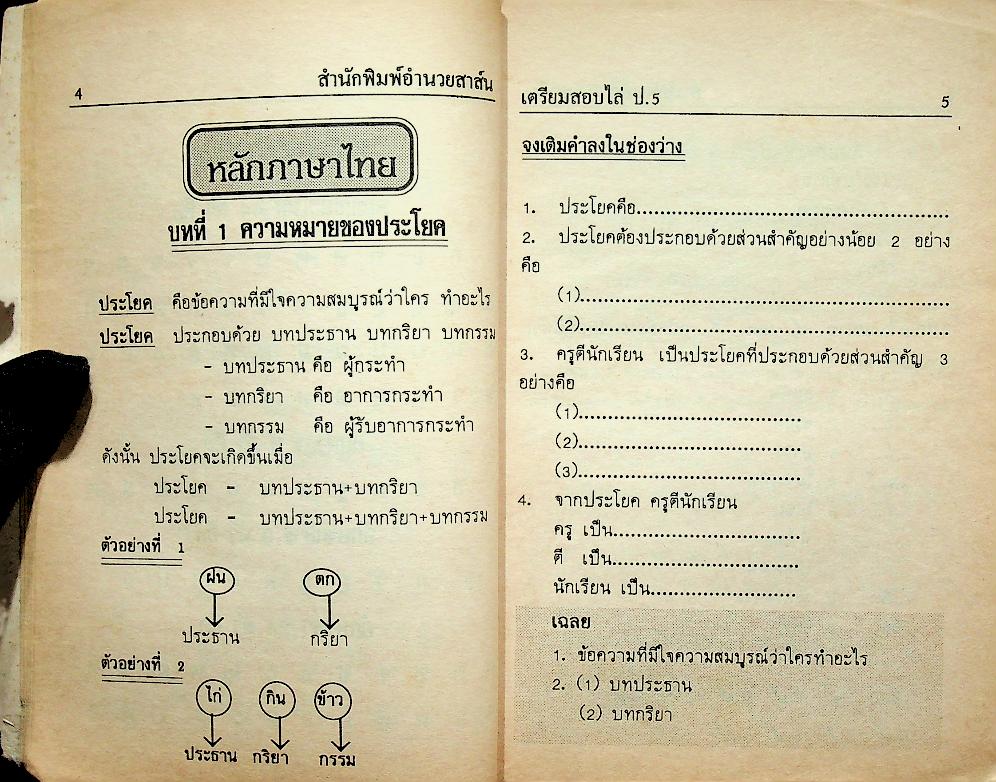 4 สำนักพิมพ์อำนวยสาส์น
หลักภาษาไทย
บทที่ 1 ความหมายของประโยค
ประโยค คือข้อความที่มีใจความสมบูรณ์ว่าใคร ทำอะไร
ประโยค ประกอบด้วย บทประธาน บทกริยา บทกรรม
- บทประธาน คือ ผู้กระทำ
- บทกริยา คือ อาการกระทำ
- บทกรรม คือ ผู้รับอาการกระทำ
ดังนั้น ประโยคจะเกิดขึ้นเมื่อ
ประโยค - บทประธาน+บทกริยา
ประโยค - บทประธาน+บทกริยา+บทกรรม
ตัวอย่างที่ 1
ฝน ตก
ประธาน กริยา
ตัวอย่างที่ 2
ไก่ กิน ข้าว
ประธาน กริยา กรรม
เตรียมสอบไล่ ป.5 5
จงเติมคำลงในช่องว่าง
1. ประโยคคือ....................................................
2. ประโยคต้องประกอบด้วยส่วนสำคัญอย่างน้อย 2 อย่าง
คือ
(1)..............................................................
(2)..............................................................
3. ครูตีนักเรียน เป็นประโยคที่ประกอบด้วยส่วนสำคัญ 3
อย่างคือ
(1).....................................
(2).....................................
(3).....................................
4. จากประโยค ครูตีนักเรียน
ครู เป็น...............................
ตี เป็น...............................
นักเรียน เป็น........................
เฉลย
1. ข้อความที่มีใจความสมบูรณ์ว่าใครทำอะไร
2. (1) บทประธาน
(2) บทกริยา